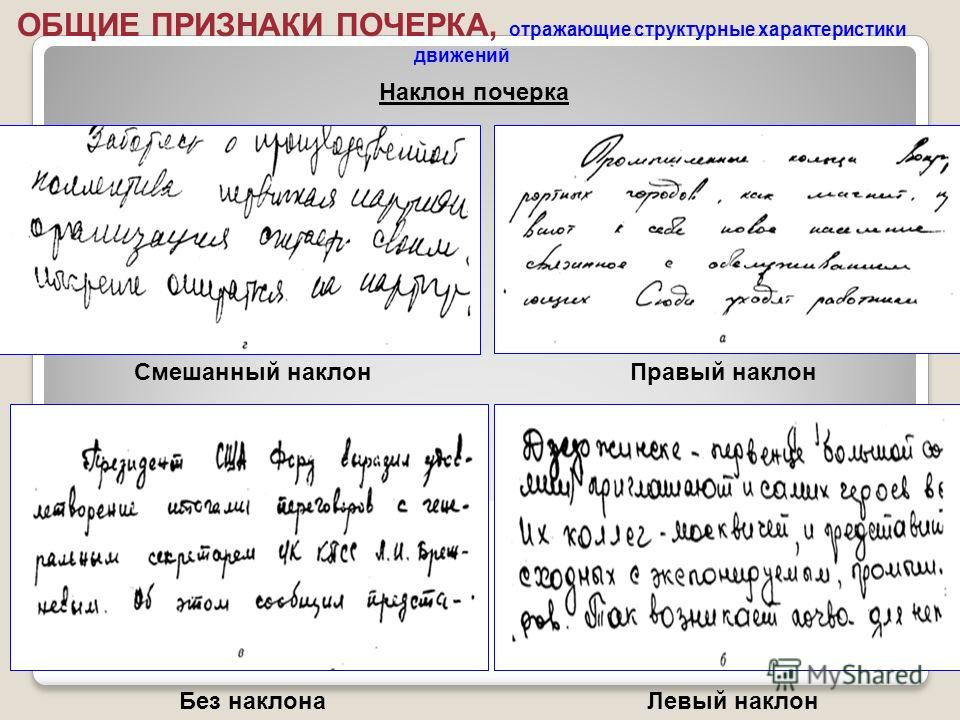 ОБЩИЕ ПРИЗНАКИ ПОЧЕРКА, отражающие структурные характеристики
движений
Наклон почерка
Заботясь о производственной
коллектива первичная партийн
организация считает своим
Искренне опираться на партгр
г
Промышленные кольца вокру
рортных городов, как магнит, п
вают к себе новое население
связанное с обслуживанием
ющих Сюди уходят работники
а
Смешанный наклон
Правый наклон
Президент США Форд выразил удов-
летворение итогами переговоров с гене-
ральным секретарем ЦК КПСС Л.И. Бреж-
невым. Об этом сообщил предста-
в
Дзержинске - первенце большой со
лии, приглашают и самих героев ве
Их коллег - москвичей, и представий
сходных с экспонируемым, громыш
ров. Так возникает почва для неп
б
Без наклона
Левый наклон
MyShared